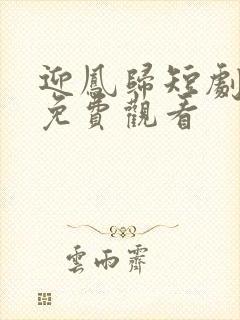 迎鳳歸短劇
免費觀看
雲雨霽